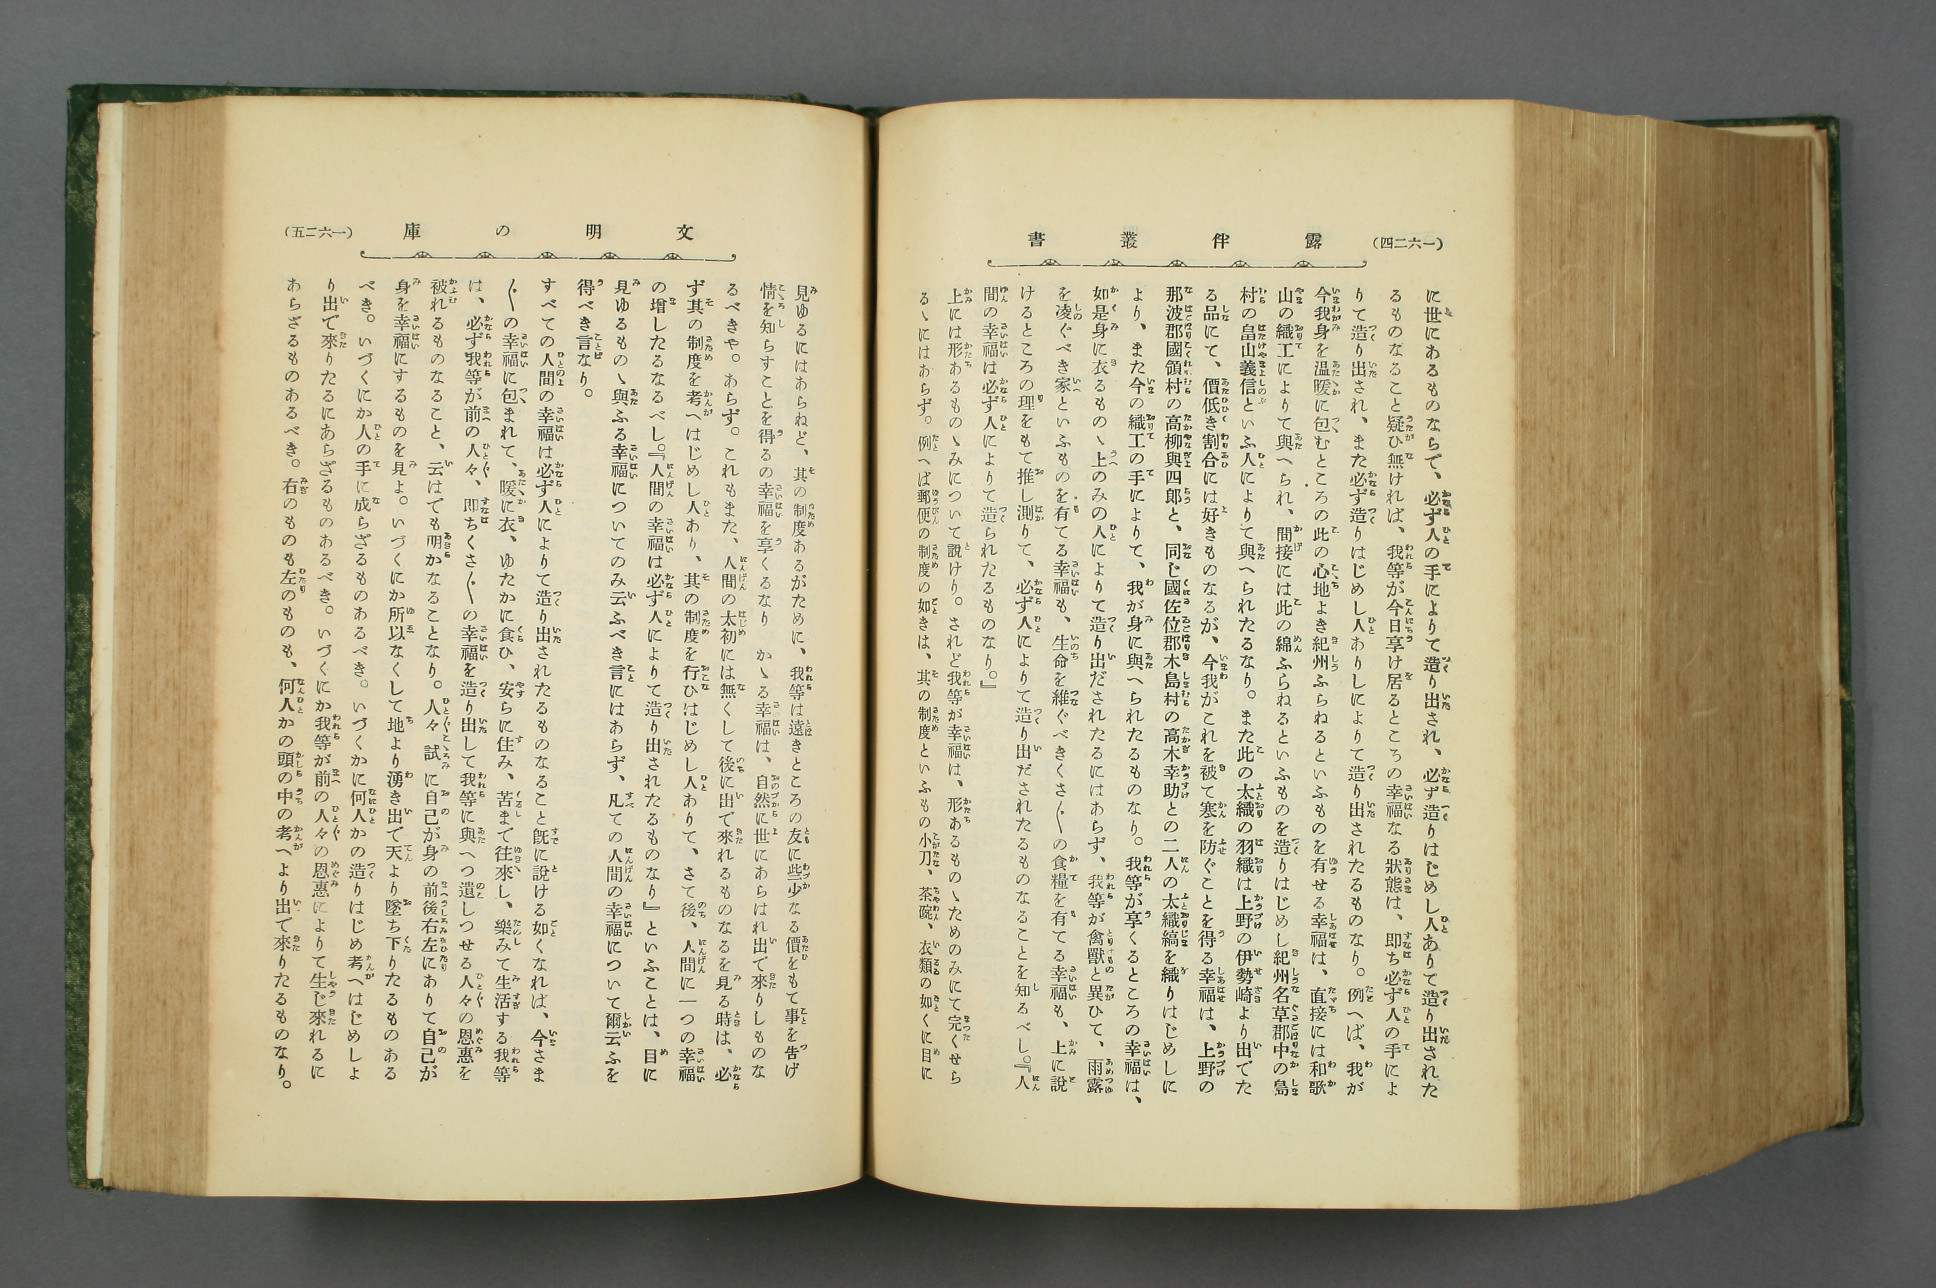 (一六二四)
露伴叢書
に世にあるものならで、必ず人の手によりて造り出され、必ず造りはじめし人ありて造り出された
るものなること疑ひ無ければ、我等が今日享け居るところの幸福なる狀態は、即ち必ず人の手によ
りて造り出され、また必ず造りはじめし人ありしによりて造り出されたるものなり。例へば、我が
今我身を温暖に包むところの此の心地よき紀州ふらねるといふものを有せる幸福は、直接には和歌
山の織工によりて與へられ、間接には此の綿ふらねるといふものを造りはじめし紀州名草郡中の島
村の畠山義信といふ人によりて與へられたるなり。また此の太織の羽織は上野の伊勢崎より出でた
る品にて、價低き割合には好きものなるが、今我がこれを被て寒を防ぐことを得る幸福は、上野の
那波郡國領村の高柳與四郎と、同じ國佐位郡木島村の高木幸助との二人の太織縞を織りはじめしに
より、また今の織工の手によりて、我が身に與へられたるものなり。我等が享くるところの幸福は、
如是身に衣るもの丶上のみの人によりて造り出だされたるにはあらず、我等が禽獸と異ひて、雨露
を凌ぐべき家といふものを有てる幸福も、生命を維ぐべきくさ〴〵の食糧を有てる幸福も、上に說
けるところの理をもて推し測りて、必ず人によりて造り出だされたるものなることを知るべし。『人
間の幸福は必ず人によりて造られたるものなり。』
上には形あるもの丶みについて說けり。されど我等が幸福は、形あるもの丶ためのみにて完くせら
る丶にはあらず。例へば郵便の制度の如きは、其の制度といふもの小刀、茶碗、衣類の如くに目に
文明の庫
(一六二五)
見ゆるにはあらねど、其の制度あるがために、我等は遠きところの友に些少なる價をもて事を告げ
情を知らすことを得るの幸福を享くるなり か丶る幸福は、自然に世にあらはれ出で來りしものな
るべきや。あらず。これもまた、人間の太初には無くして後に出で來れるものなるを見る時は、必
ず其の制度を考へはじめし人あり、其の制度を行ひはじめし人ありて、さて後、人間に一つの幸福
の增したるなるべし。『人間の幸福は必ず人によりて造り出されたるものなり』といふことは、目に
見ゆるもの丶與ふる幸福についてのみ云ふべき言にはあらず、凡ての人間の幸福について爾云ふを
得べき言なり。
すべての人間の幸福は必ず人によりて造り出されたるものなること旣に說ける如くなれば、今さま
〴〵の幸福に包まれて、暖に衣、ゆたかに食ひ、安らに住み、苦まで往來し、樂みて生活する我等
は、必ず我等が前の人々、即ちくさ〴〵の幸福を造り出して我等に與へつ遺しつせる人々の恩惠を
被れるものなること、云はでも明かなることなり。人々試に自己が身の前後右左にありて自己が
身を幸福にするものを見よ。いづくにか所以なくして地より湧き出で天より墜ち下りたるものある
べき。いづくにか人の手に成らざるものあるべき。いづくかに何人かの造りはじめ考へはじめしよ
り出で來りたるにあらざるものあるべき。いづくにか我等が前の人々の恩惠によりて生じ來れるに
あらざるものあるべき。右のものも左のものも、何人かの頭の中の考へより出で來りたるものなり。